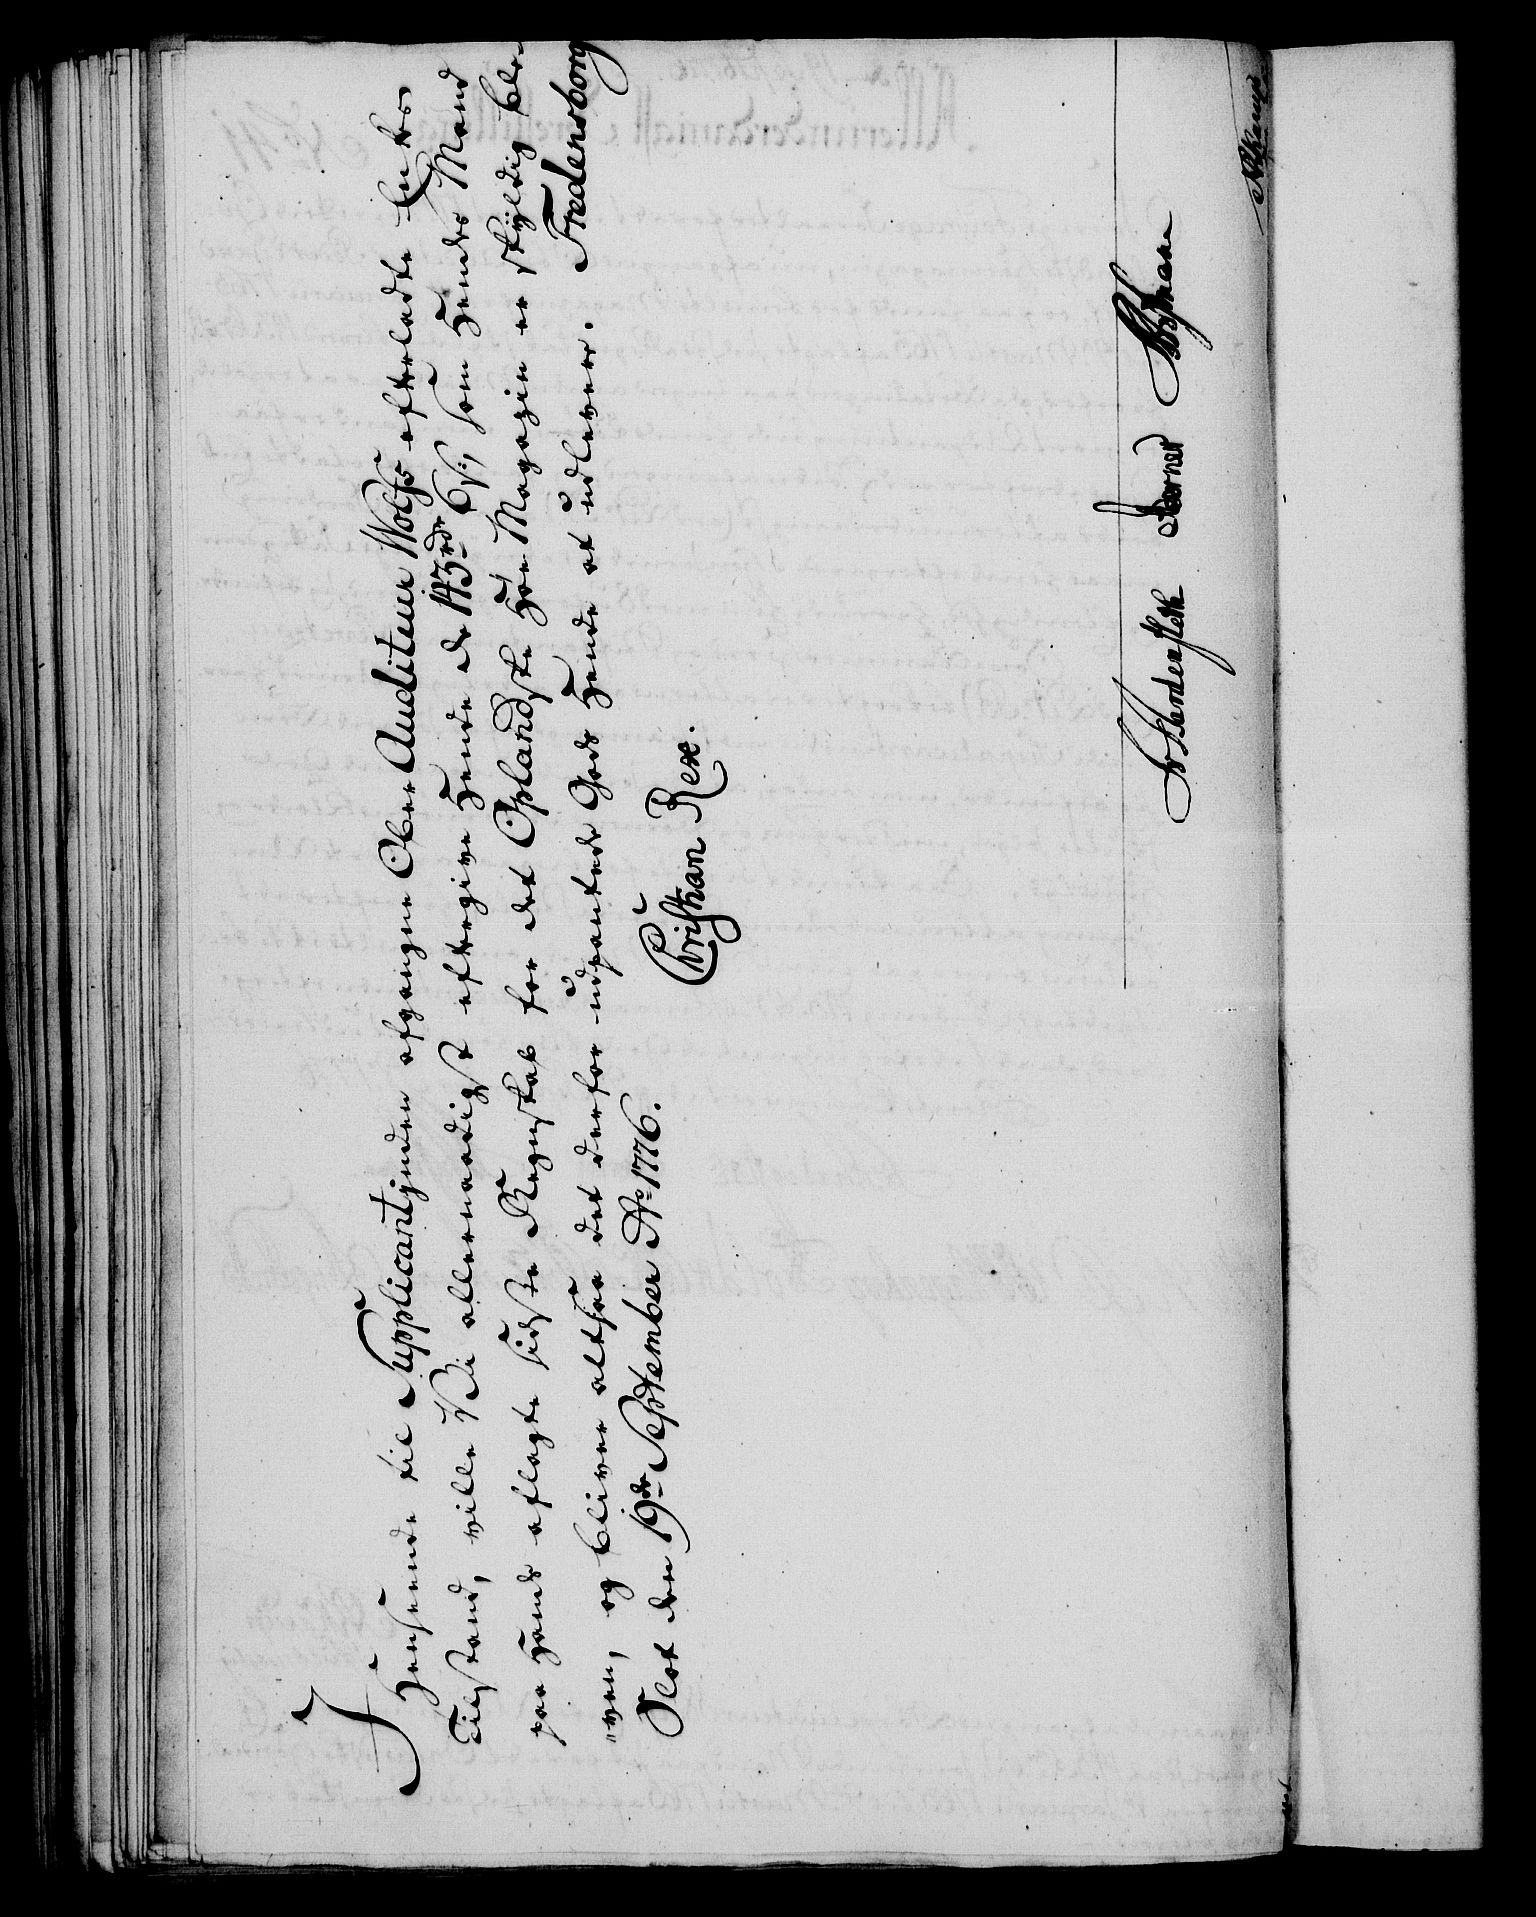 I Henseende til Supplicantinden afgangne Ober Auditeur Wolfs efterladte Enkes
Tilstand, ville Vi allernaadigst eftergive Hende de 143 rdr 6 s; som Hendes Mand
paa Hans aflagte Sidste Regnskab for det Oplandske Høe Magazin er skyldig ble-
"ven, og bliver altsaa det derfor udpantede Gods Hende at udlevere. Fredensborg
Slot den 19de September Ao 1776.
Christian Rex.